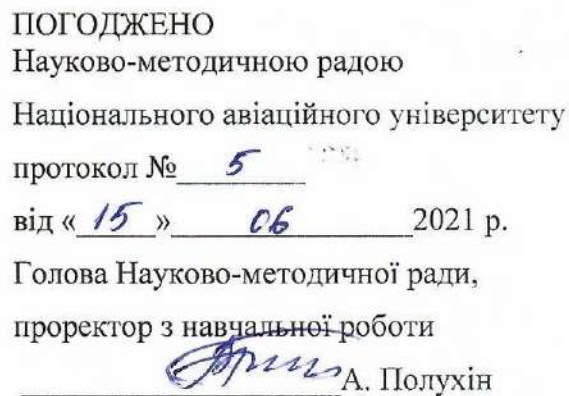 ПОГОДЖЕНО
Науково-методичною радою
Національного авіаційного університету
протокол № 5
від « 15 » 06 2021 р.
Голова Науково-методичної ради,
проректор з навчальної роботи
А. Полухін